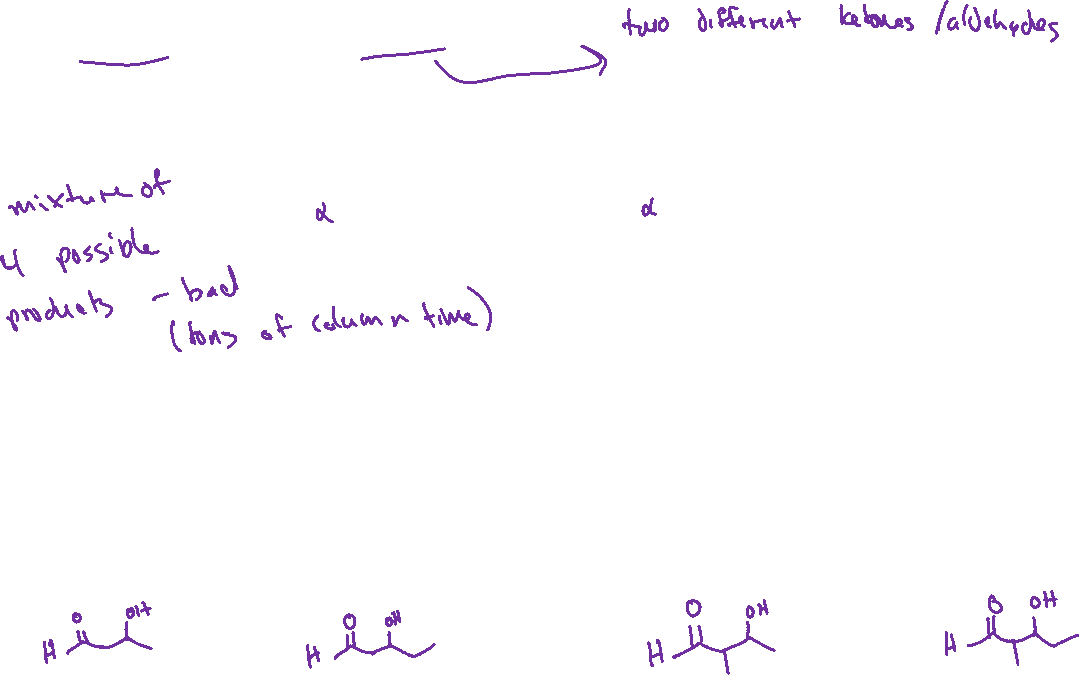 two different ketones/aldehydes
mixture of
4 possible
products - bad
(tons of column time)
α
α
O OH
H
O OH
H
O OH
H
O OH
H